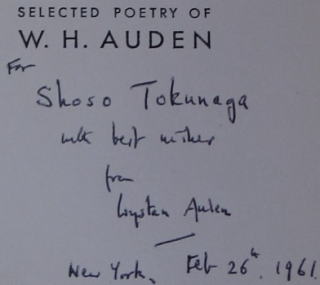 SELECTED POETRY OF
W. H. AUDEN
For
Shoso Tokunaga
with best wishes
from
Wystan Auden
New York, Feb 26th. 1961.